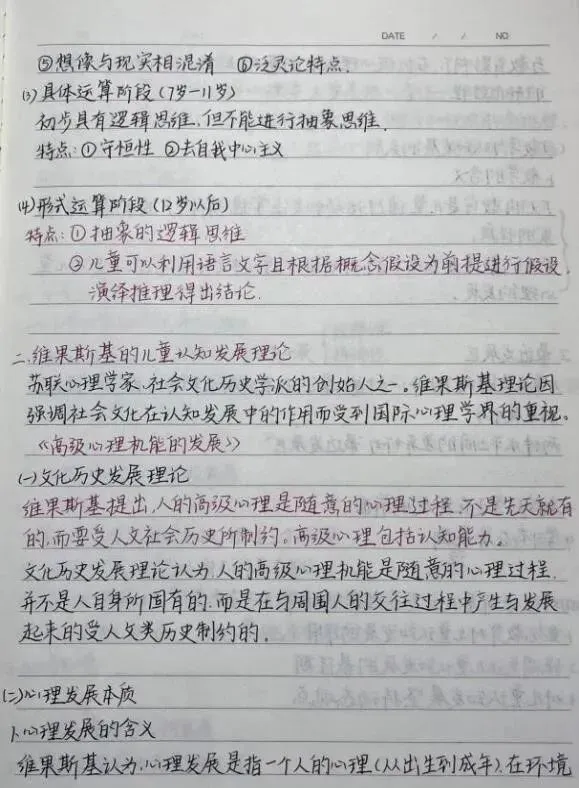 DATE / / NO
⑤想像与现实相混淆 ⑥泛灵论特点.
(3)具体运算阶段(7岁—11岁)
初步具有逻辑思维,但不能进行抽象思维.
特点:①守恒性 ②去自我中心主义
(4)形式运算阶段(12岁以后)
特点:①抽象的逻辑思维
②儿童可以利用语言文字且根据概念假设为前提进行假设,
演绎推理得出结论.
二.维果斯基的儿童认知发展理论
苏联心理学家、社会文化历史学派的创始人之一。维果斯基理论因
强调社会文化在认知发展中的作用而受到国际心理学界的重视。
《高级心理机能的发展》
(一)文化历史发展理论
维果斯基提出,人的高级心理是随意的心理过程,不是先天就有
的,而要受人文社会历史所制约。高级心理包括认知能力。
文化历史发展理论认为,人的高级心理机能是随意的心理过程,
并不是人自身所固有的,而是在与周围人的交往过程中产生与发展
起来的受人文类历史制约的.
(二)心理发展本质
1.心理发展的含义
维果斯基认为,心理发展是指一个人的心理(从出生到成年),在环境